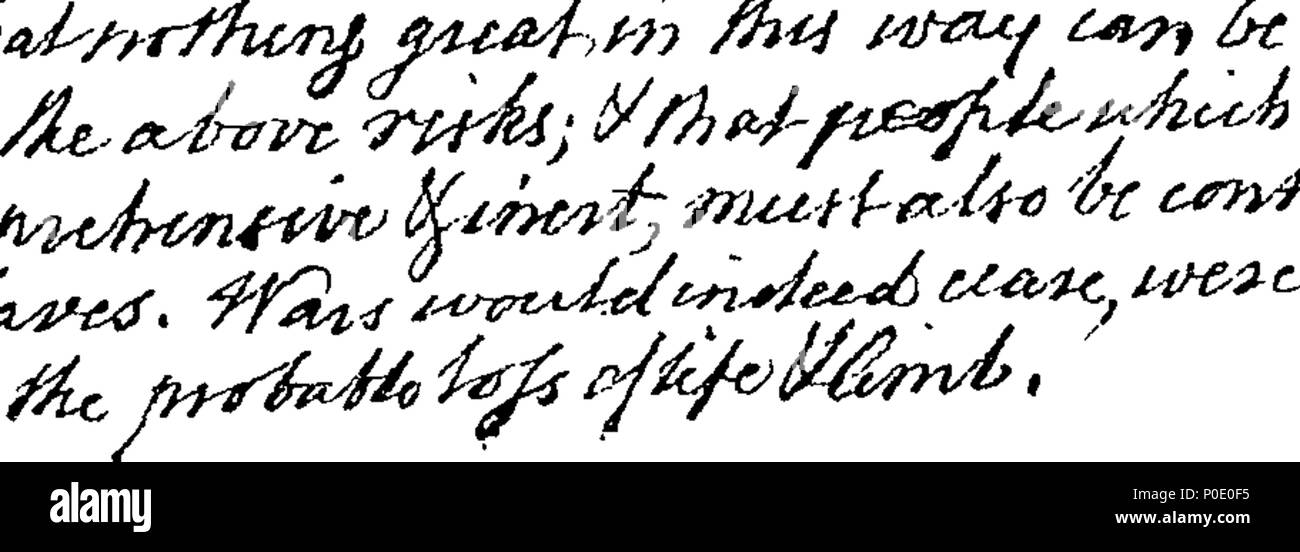 at nothing great, in this way can, be
the above risks; & that people which
prehensive & inert, must also be cont
laves. Wars would indeed cease, were
the probable loss of life & limb.
alamy
Image ID: P0E0F5
www.alamy.com